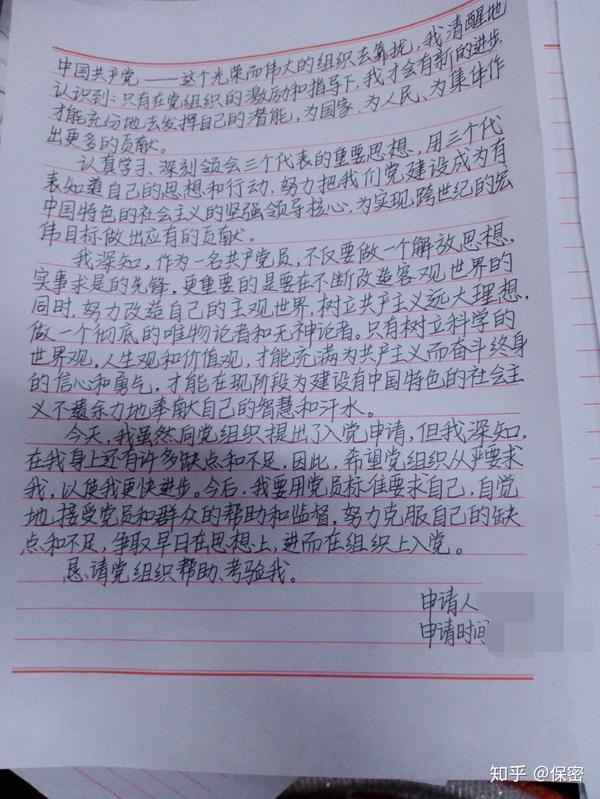 中国共产党——这个光荣而伟大的组织去靠拢，我清醒地
认识到：只有在党组织的激励和指导下，我才会有新的进步，
才能充份地去发挥自己的潜能，为国家、为人民、为集体作
出更多的贡献。
认真学习、深刻领会三个代表的重要思想，用三个代
表知道自己的思想和行动，努力把我们党建设成为有
中国特色的社会主义的坚强领导核心，为实现跨世纪的宏
伟目标做出应有的贡献。
我深知，作为一名共产党员，不仅要做一个解放思想，
实事求是的先锋，更重要的是要在不断改造客观世界的
同时，努力改造自己的主观世界，树立共产主义远大理想，
做一个彻底的唯物论者和无神论者。只有树立科学的
世界观，人生观和价值观，才能充满为共产主义而奋斗终身
的信心和勇气，才能在现阶段为建设有中国特色的社会主
义不遗余力地奉献自己的智慧和汗水。
今天，我虽然向党组织提出了入党申请，但我深知，
在我身上还有许多缺点和不足，因此，希望党组织从严要求
我，以使我更快进步。今后，我要用党员标准要求自己，自觉
地接受党员和群众的帮助和监督，努力克服自己的缺
点和不足，争取早日在思想上，进而在组织上入党。
恳请党组织帮助、考验我。
申请人
申请时间
知乎 @保密